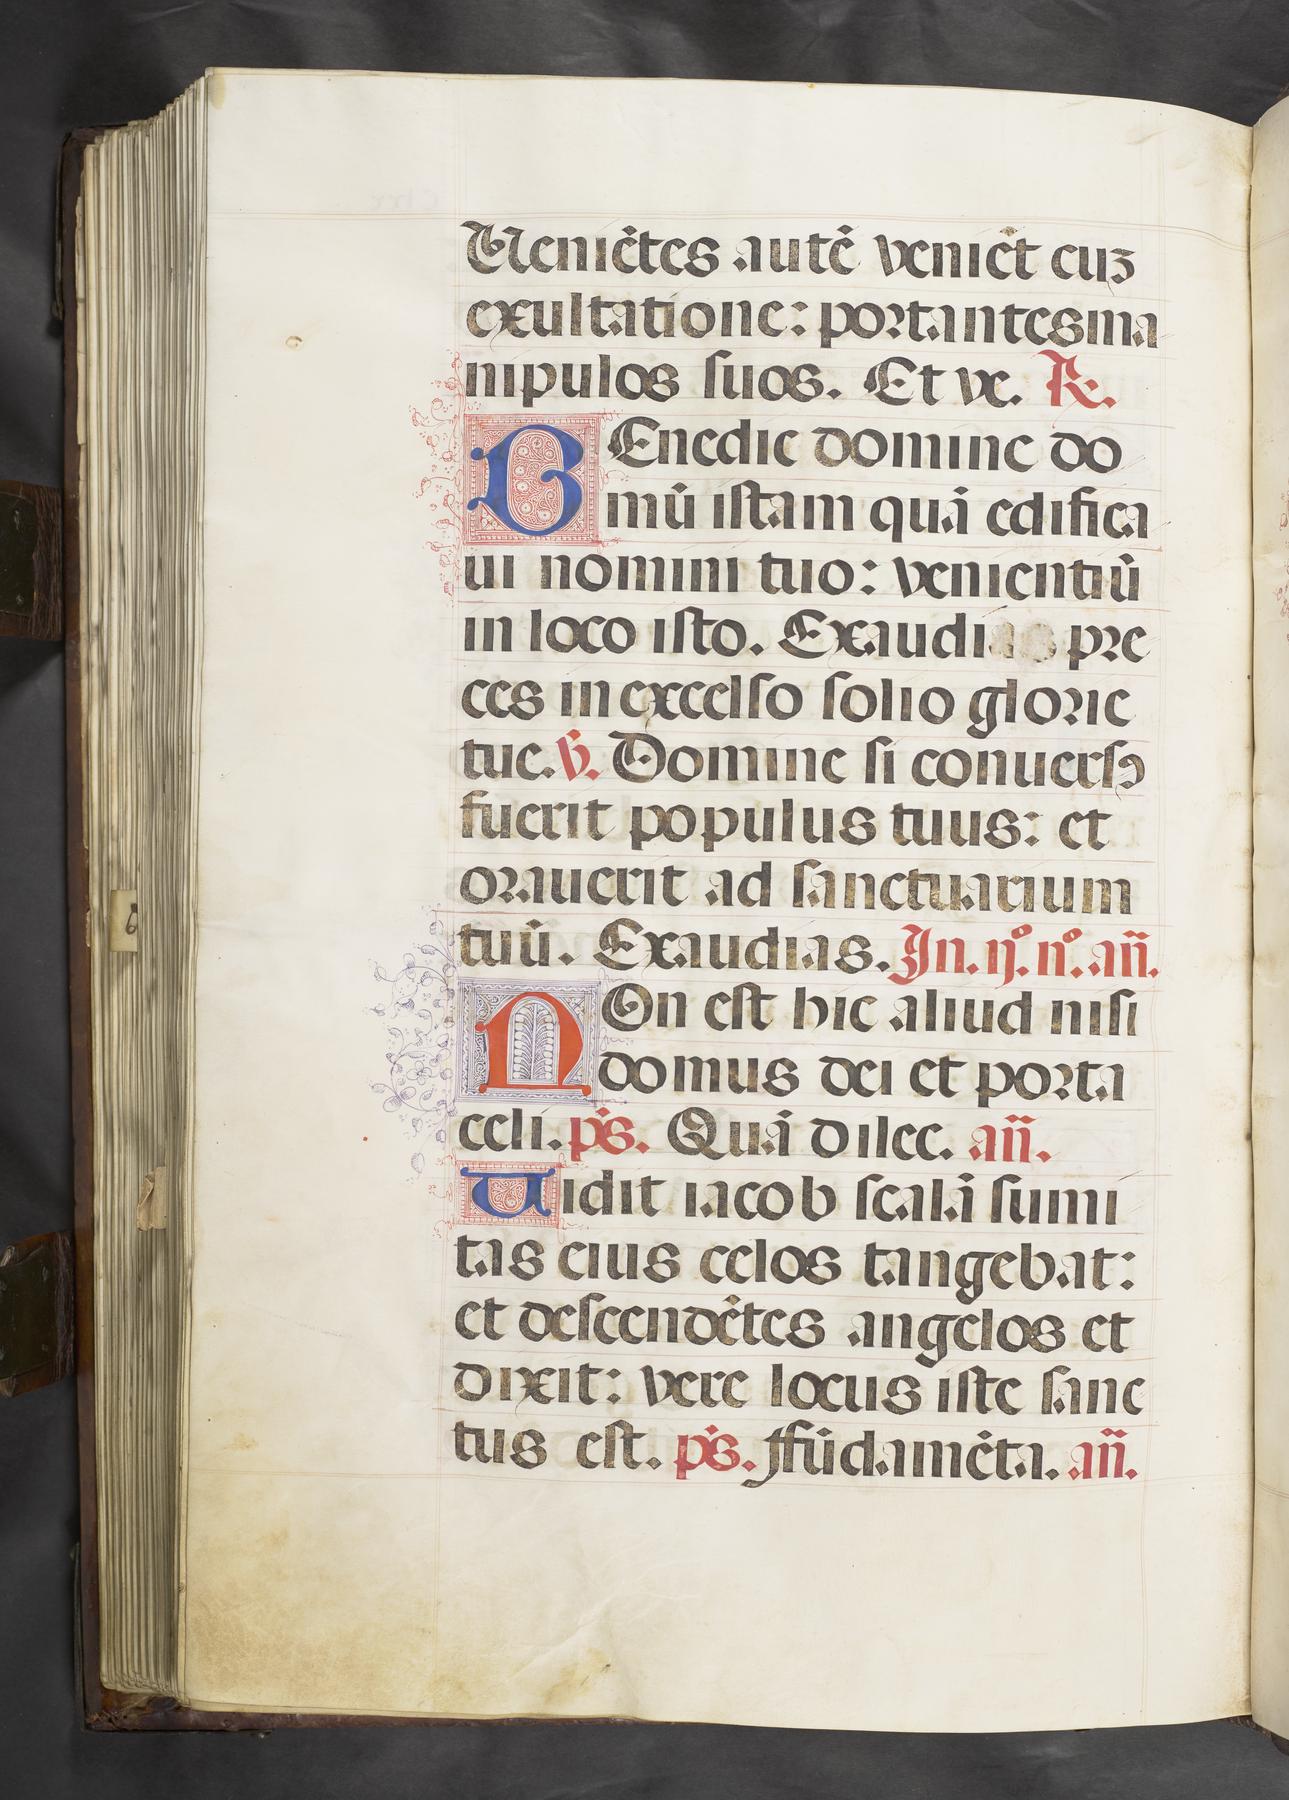 Veniẽtes autẽ veniẽt cuȝ
exultatione: portantes ma
nipulos suos. Et ve. R.
BEnedic domine do
mũ istam quã edifica
ui nomini tuo: venientiũ
in loco isto. Exaudi pre
ces in excelso solio glorie
tue. V. Domine si conuersꝰ
fuerit populus tuus: et
orauerit ad sanctuarium
tuũ. Exaudias. In. ij. nº. añ.
NOn est hic aliud nisi
domus dei et porta
celi. ps. Quã dilec. añ.
Uidit iacob scalã sumi
tas eius celos tangebat:
et descendẽtes angelos et
dixit: vere locus iste sanc
tus est. ps. ffũdamẽta. añ.
6